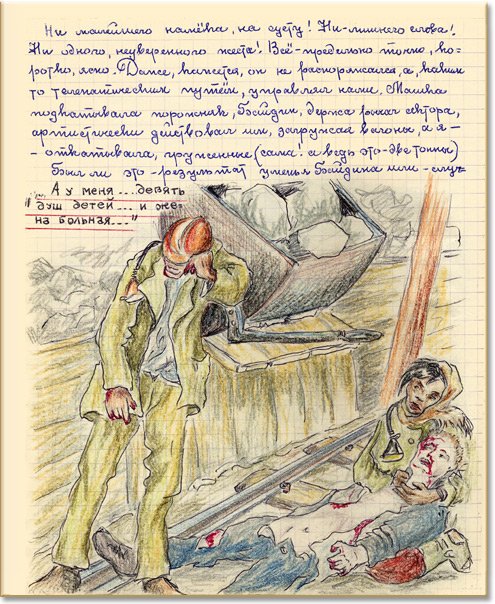 Ни малейшего намёка, на суету! Ни-лишнего слова!
Ни одного, неуверенного жеста! Всё-предельно точно, ко-
ротко, ясно. Далее, кажется, он не распоряжался, а, каким
то телепатическим путём, управлял нами. Машка
подкатывала порожняк, Бэйдин, держа рычаг сектора,
артистически действовал им, загружая вагоны, а я-
- откатывала, груженные (сама! а ведь это-две тонны)
Был ли это-результат уменья Бэйдина или-слу-
"А у меня ... девять
душ детей... и же-
на больная..."